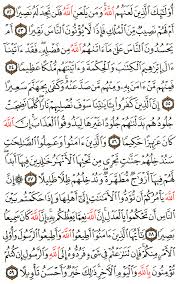 أُولَٰئِكَ الَّذِينَ لَعَنَهُمُ اللَّهُ وَمَن يَلْعَنِ اللَّهُ فَلَن تَجِدَ لَهُ نَصِيرًا ٥٢
أَمْ لَهُمْ نَصِيبٌ مِّنَ الْمُلْكِ فَإِذًا لَّا يُؤْتُونَ النَّاسَ نَقِيرًا ٥٣ أَمْ
يَحْسُدُونَ النَّاسَ عَلَىٰ مَا آتَاهُمُ اللَّهُ مِن فَضْلِهِ فَقَدْ آتَيْنَا
آلَ إِبْرَاهِيمَ الْكِتَابَ وَالْحِكْمَةَ وَآتَيْنَاهُم مُّلْكًا عَظِيمًا ٥٤
فَمِنْهُم مَّنْ آمَنَ بِهِ وَمِنْهُم مَّن صَدَّ عَنْهُ وَكَفَىٰ بِجَهَنَّمَ سَعِيرًا
٥٥ إِنَّ الَّذِينَ كَفَرُوا بِآيَاتِنَا سَوْفَ نُصْلِيهِمْ نَارًا كُلَّمَا نَضِجَتْ
جُلُودُهُم بَدَّلْنَاهُمْ جُلُودًا غَيْرَهَا لِيَذُوقُوا الْعَذَابَ إِنَّ
اللَّهَ كَانَ عَزِيزًا حَكِيمًا ٥٦ وَالَّذِينَ آمَنُوا وَعَمِلُوا الصَّالِحَاتِ
سَنُدْخِلُهُمْ جَنَّاتٍ تَجْرِي مِن تَحْتِهَا الْأَنْهَارُ خَالِدِينَ فِيهَا أَبَدًا
لَّهُمْ فِيهَا أَزْوَاجٌ مُّطَهَّرَةٌ وَنُدْخِلُهُمْ ظِلًّا ظَلِيلًا ٥٧ إِنَّ
اللَّهَ يَأْمُرُكُمْ أَن تُؤَدُّوا الْأَمَانَاتِ إِلَىٰ أَهْلِهَا وَإِذَا حَكَمْتُم بَيْنَ
النَّاسِ أَن تَحْكُمُوا بِالْعَدْلِ إِنَّ اللَّهَ نِعِمَّا يَعِظُكُم بِهِ إِنَّ اللَّهَ كَانَ
سَمِيعًا بَصِيرًا ٥٨ يَا أَيُّهَا الَّذِينَ آمَنُوا أَطِيعُوا اللَّهَ وَأَطِيعُوا الرَّسُولَ
وَأُولِي الْأَمْرِ مِنكُمْ فَإِن تَنَازَعْتُمْ فِي شَيْءٍ فَرُدُّوهُ إِلَى اللَّهِ وَالرَّسُولِ إِن كُنتُمْ
تُؤْمِنُونَ بِاللَّهِ وَالْيَوْمِ الْآخِرِ ذَٰلِكَ خَيْرٌ وَأَحْسَنُ تَأْوِيلًا ٥٩